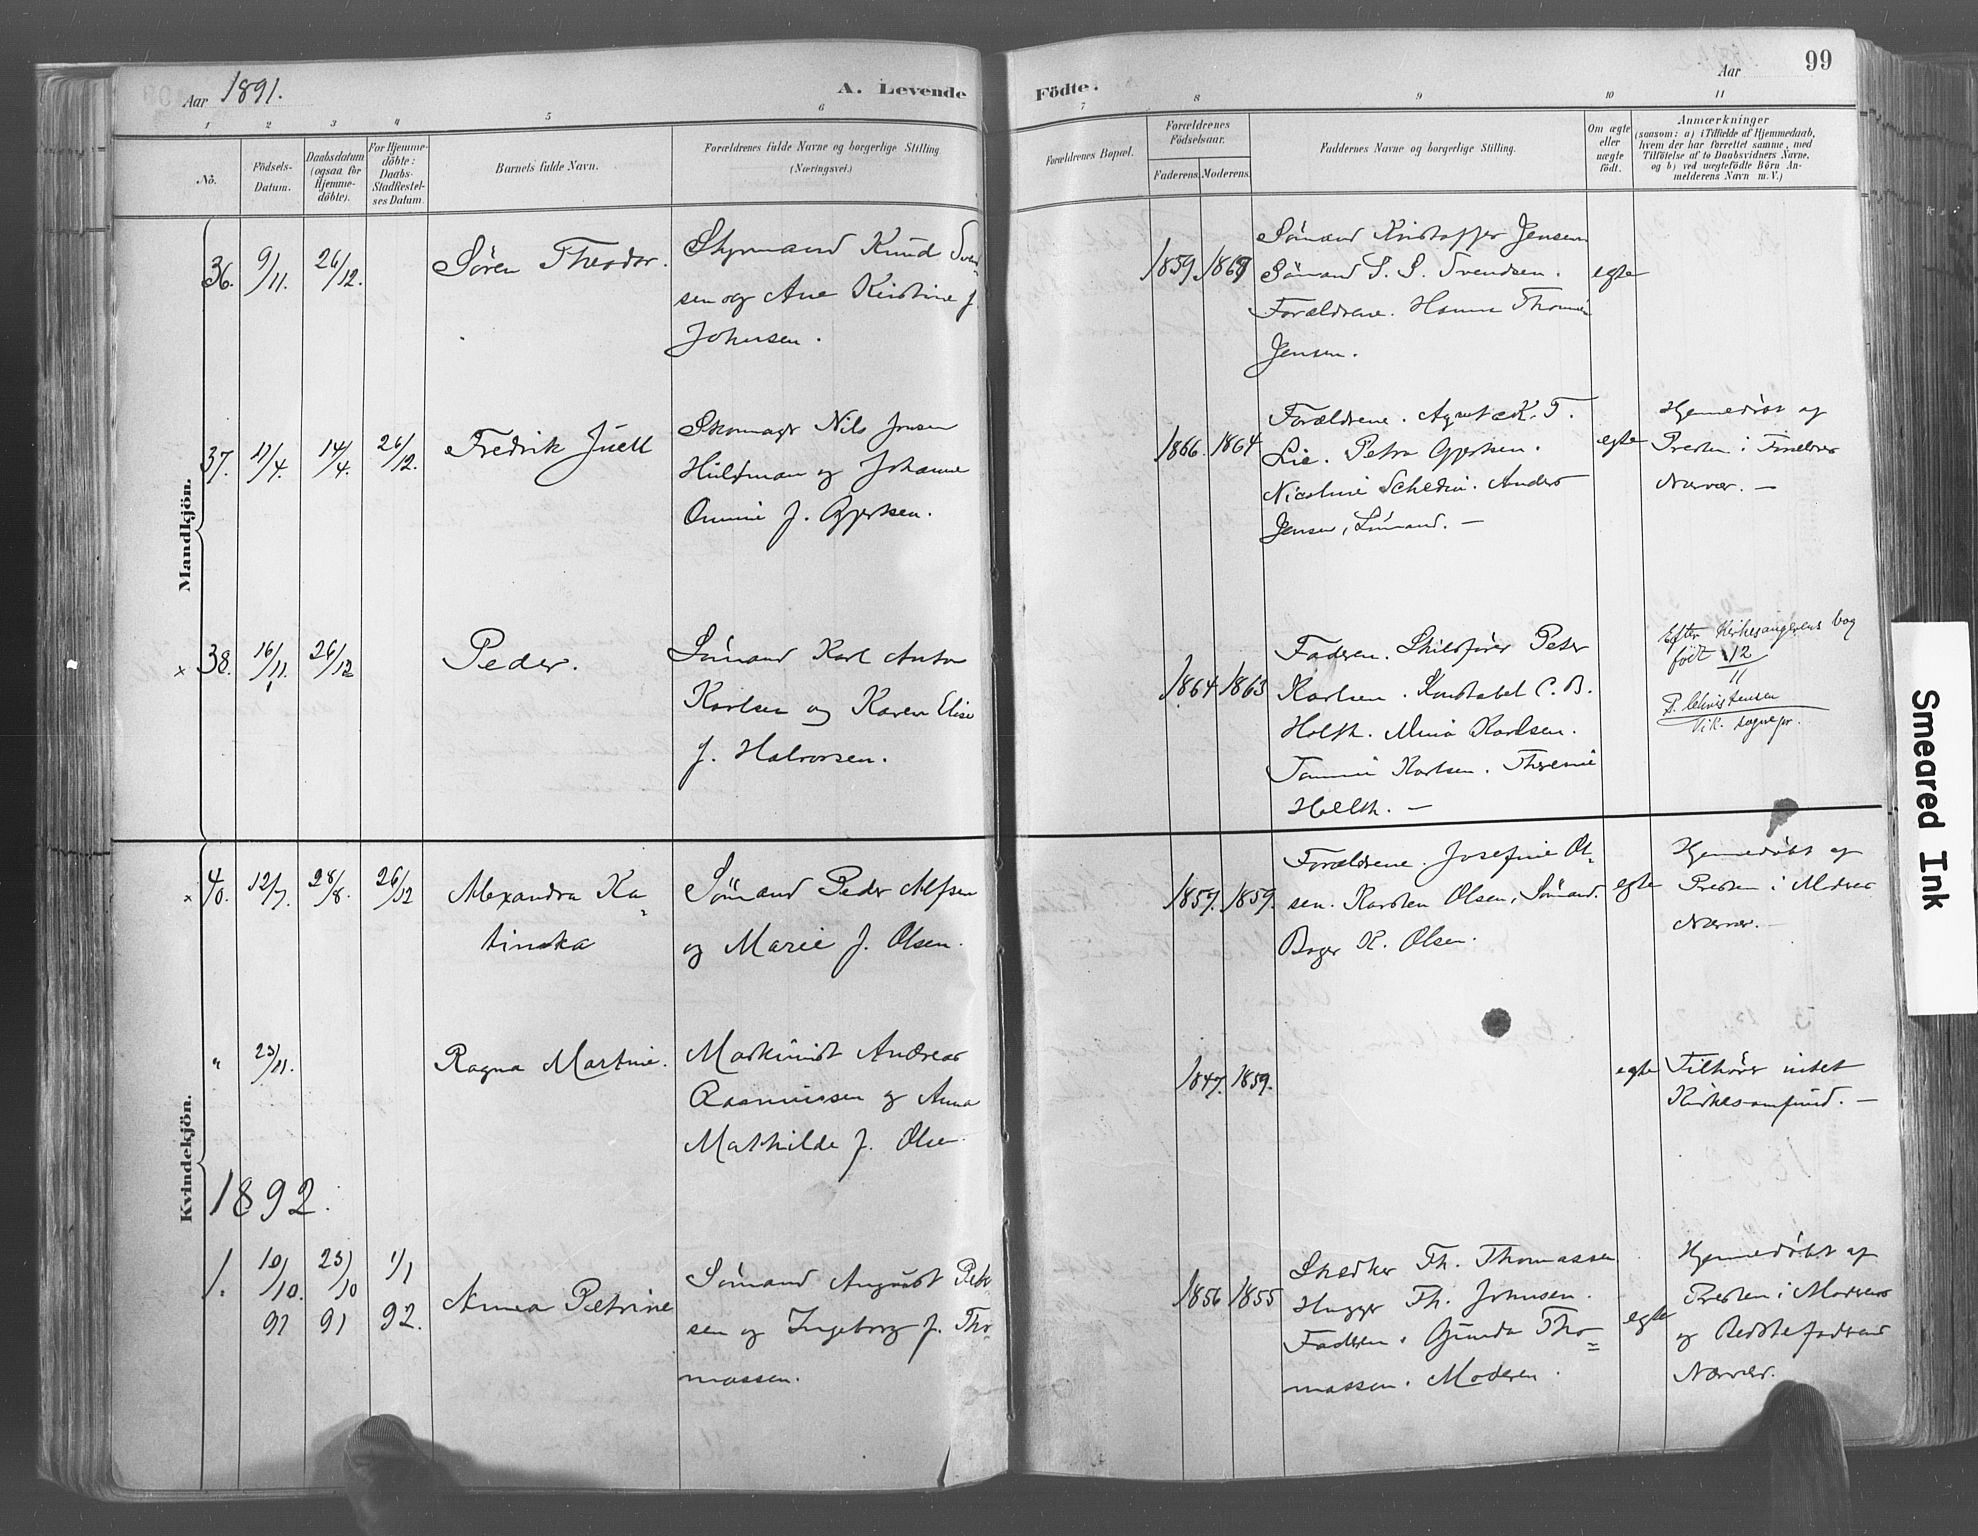 Aar 1891.
A. Levende
Födte.
Aar
99
1 2 3 4 5 6 7 8 9 10 11
No.
Födsels-
Datum.
Daabsdatum
(ogsaa for
Hjemme-
døbte).
For Hjemme-
döbte:
Daabs-
Stadfæstel-
ses Datum.
Barnets fulde Navn.
Forældrenes fulde Navne og borgerlige Stilling
(Næringsvei.)
Forældrenes Bopæl.
Forældrenes
Födselsaar.
Faderens. Moderens.
Faddernes Navne og borgerlige Stilling.
Om ægte
eller
uægte
födt.
Anmærkninger
(saasom: a) i Tilfælde af Hjemmedaab,
hvem der har forrettet samme, med
Tilföielse af to Daabsvidners Navne,
og b) ved uægtefödte Börn An-
melderens Navn m. V.)
Mandkjön.
36. 9/11. 26/12. Søren Theodor.
Styrmand Knud Svend-
sen og Ane Kristine f.
Johnsen.
1859. 1863
Sømand Kristoffer Jensen
Sømand S. S. Svendsen.
Forældrene. Hanna
Jensen.
egte
37. 11/4. 14/4. 26/12. Fredrik Juell
Skomager Nils Jensen
Huldman og Johanne
f. Gjertsen.
1866. 1864
Forældrene. K. T.
Lie. Petra Gjertsen.
Anders
Jensen, Sømand. —
egte
Hjemmedøbt af
Presten i
Nærvær. —
x 38. 16/11. 26/12 Peder.
Sømand Karl Anton
Karlsen og Karen Elise
f. Halvorsen.
1864 1863
Faderen. Peter
Karlsen. Konstabel C. B.
Holth. Mina Karlsen.
Karlsen.
Holth. —
Efter Kirkesangerens bog
født 12
11
P. Christensen
Vik. sognepr.
Kvindekjön.
x 40. 12/7. 28/8. 26/12 Alexandra Ka=
tinka
Sømand Peder Alfsen
og Marie f. Olsen.
1859. 1859.
Forældrene. Josefine Ol=
sen. Karsten Olsen, Sømand.
Bager K. Olsen.
egte
Hjemmedøbt af
Presten i Moderens
Nærvær. —
" 23/11. Ragna Martine.
Andreas
Rasmussen og Anna
Mathilde f. Olsen
1847. 1859.
egte
Tilhører intet
Kirkesamfund. —
1892.
1. 10/10. 23/10 1/1
91 91 92.
Anna Petrine
Sømand August Peter-
sen og Ingeborg f. Tho-
massen.
1856 1855
Snedker Th. Thomassen
Hugger Th. Johnsen.
Faderen. Gunda Tho=
massen. Moderen.
egte
Hjemmedøbt af
Presten i Moderens
og Bedstefaderens
Nærvær.
Smeared Ink